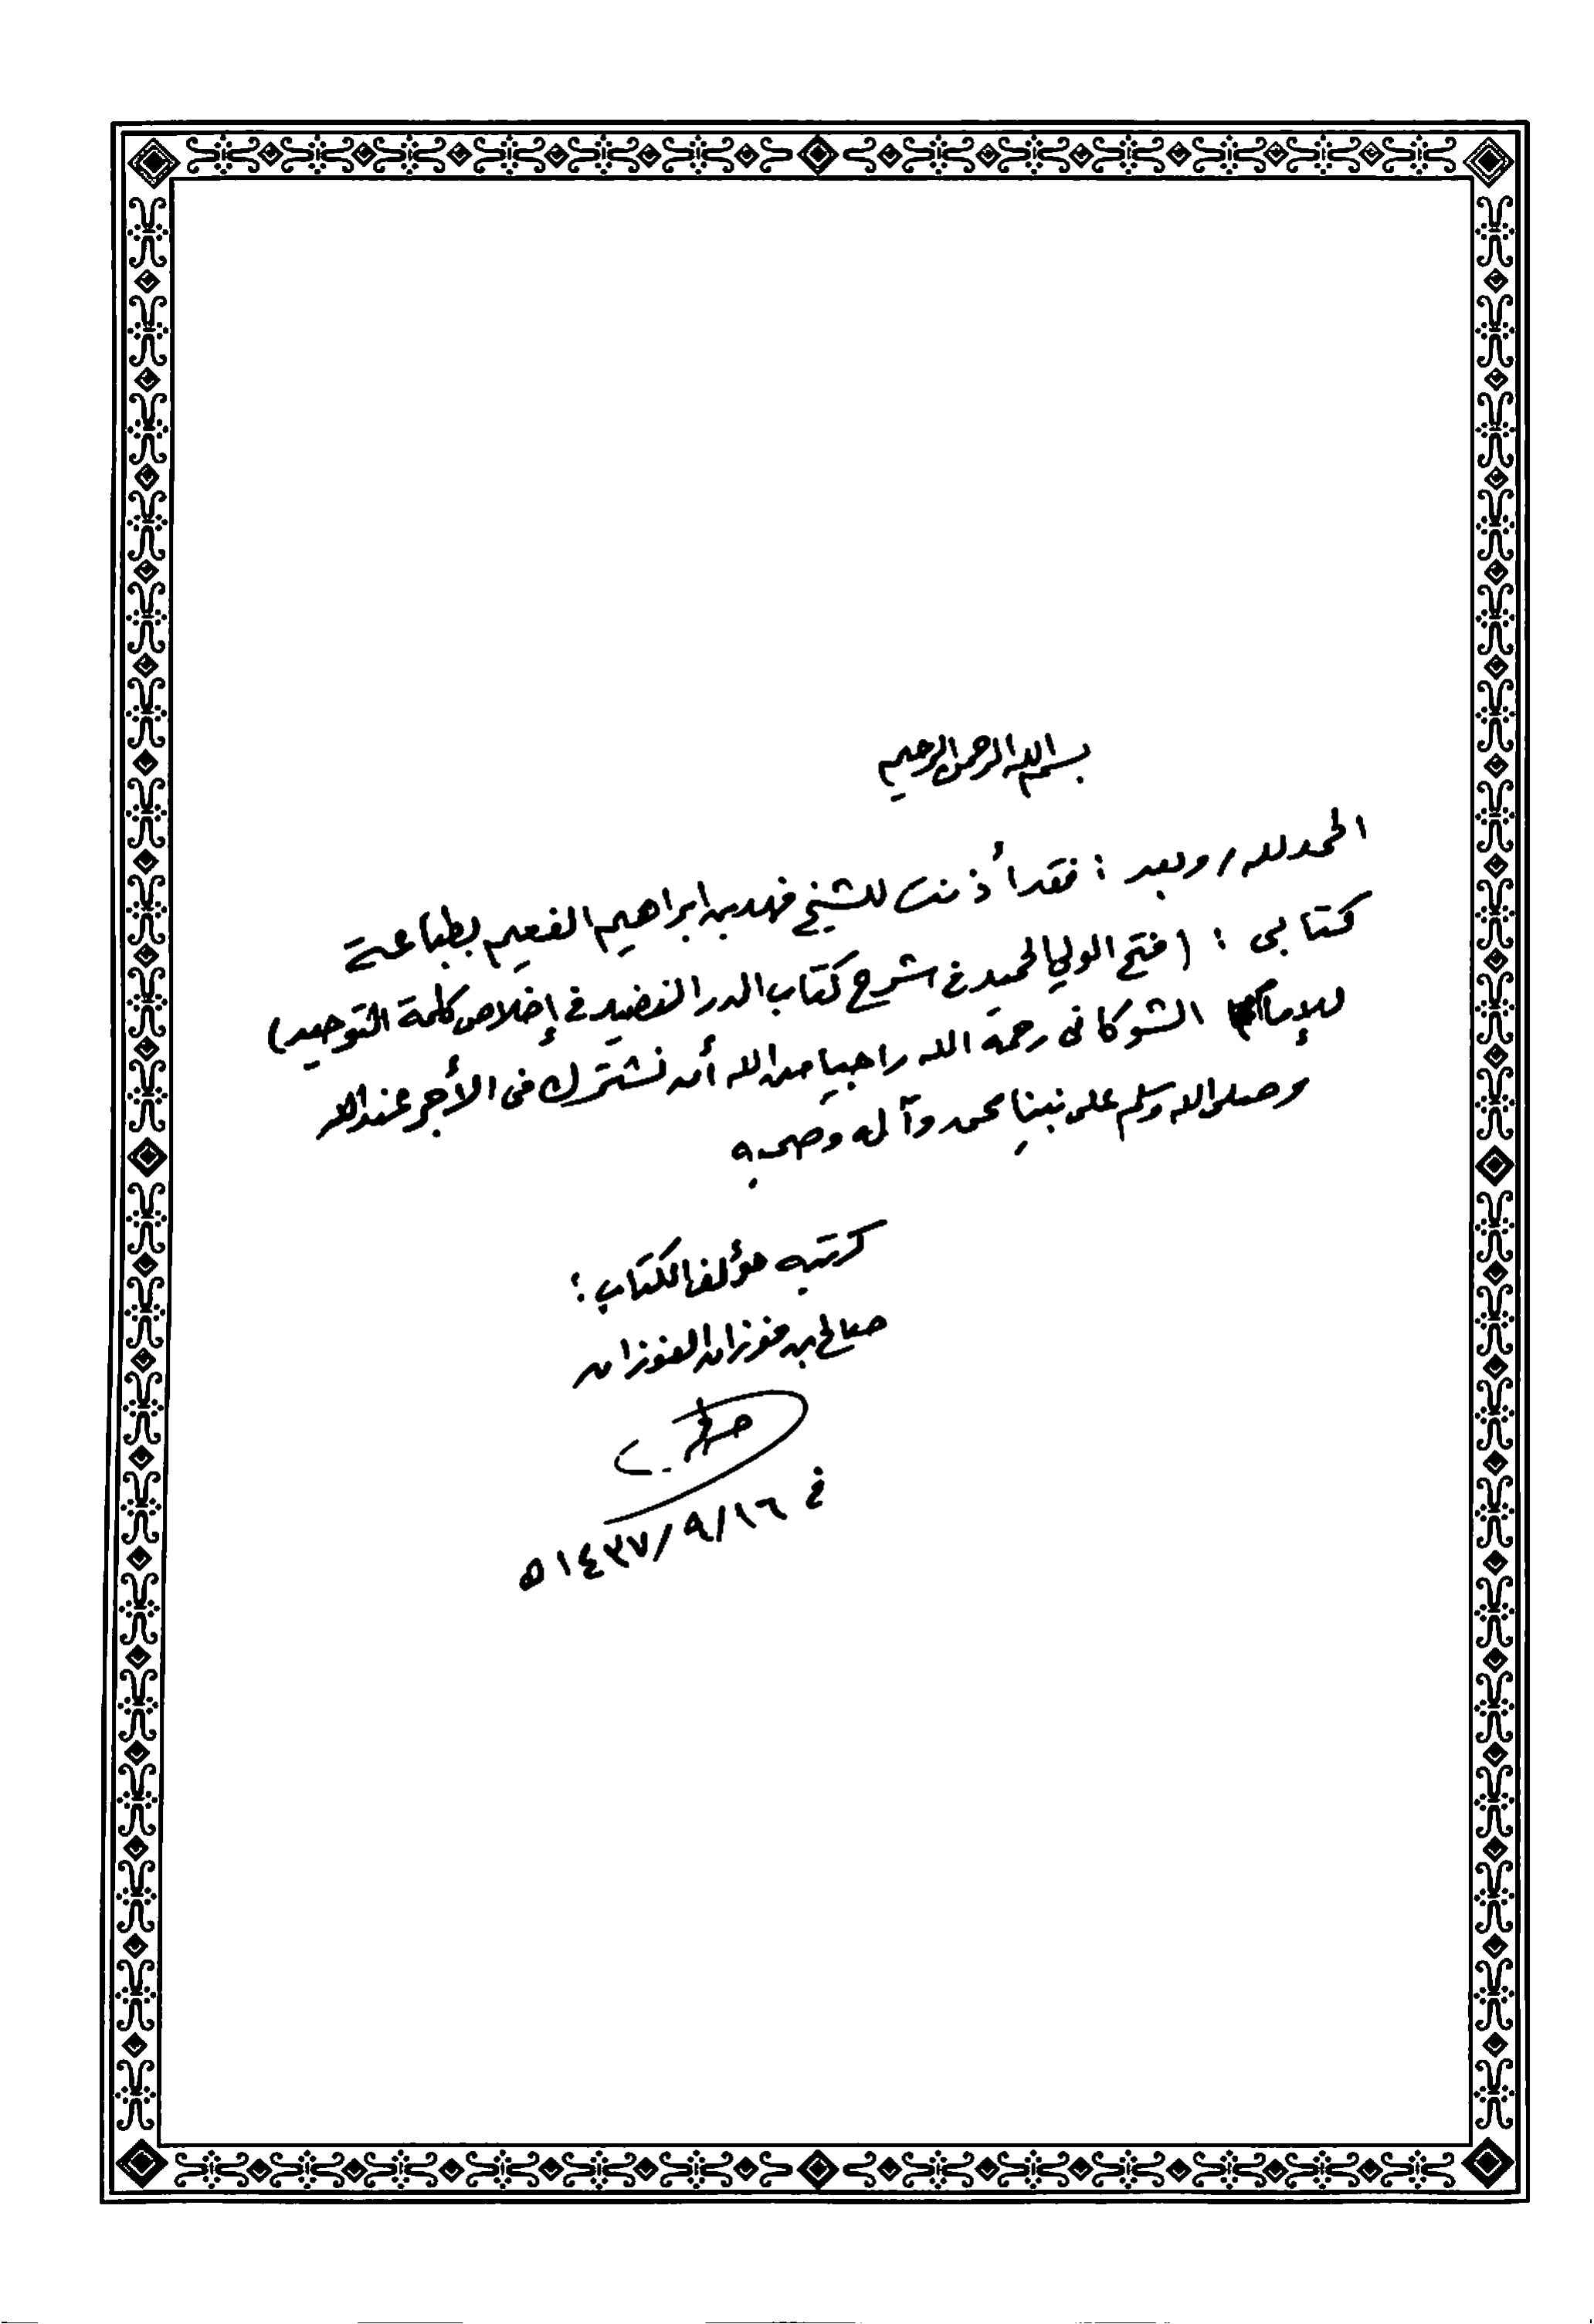 بسم الله الرحمن الرحيم
الحمد لله / وبعد : فقد أذنت للشيخ فهد بن ابراهيم الفعيم بطباعة
كتابي : (فتح الولي الحميد في شرح كتاب الدر النضيد في إخلاص كلمة التوحيد)
للإمام الشوكاني رحمه الله راجيا من الله أن نشترك في الأجر عند الله
وصلى الله وسلم على نبينا محمد وآله وصحبه
كتبه مؤلف الكتاب :
صالح بن فوزان الفوزان
في ١٤٣٧/٩/١٦ه